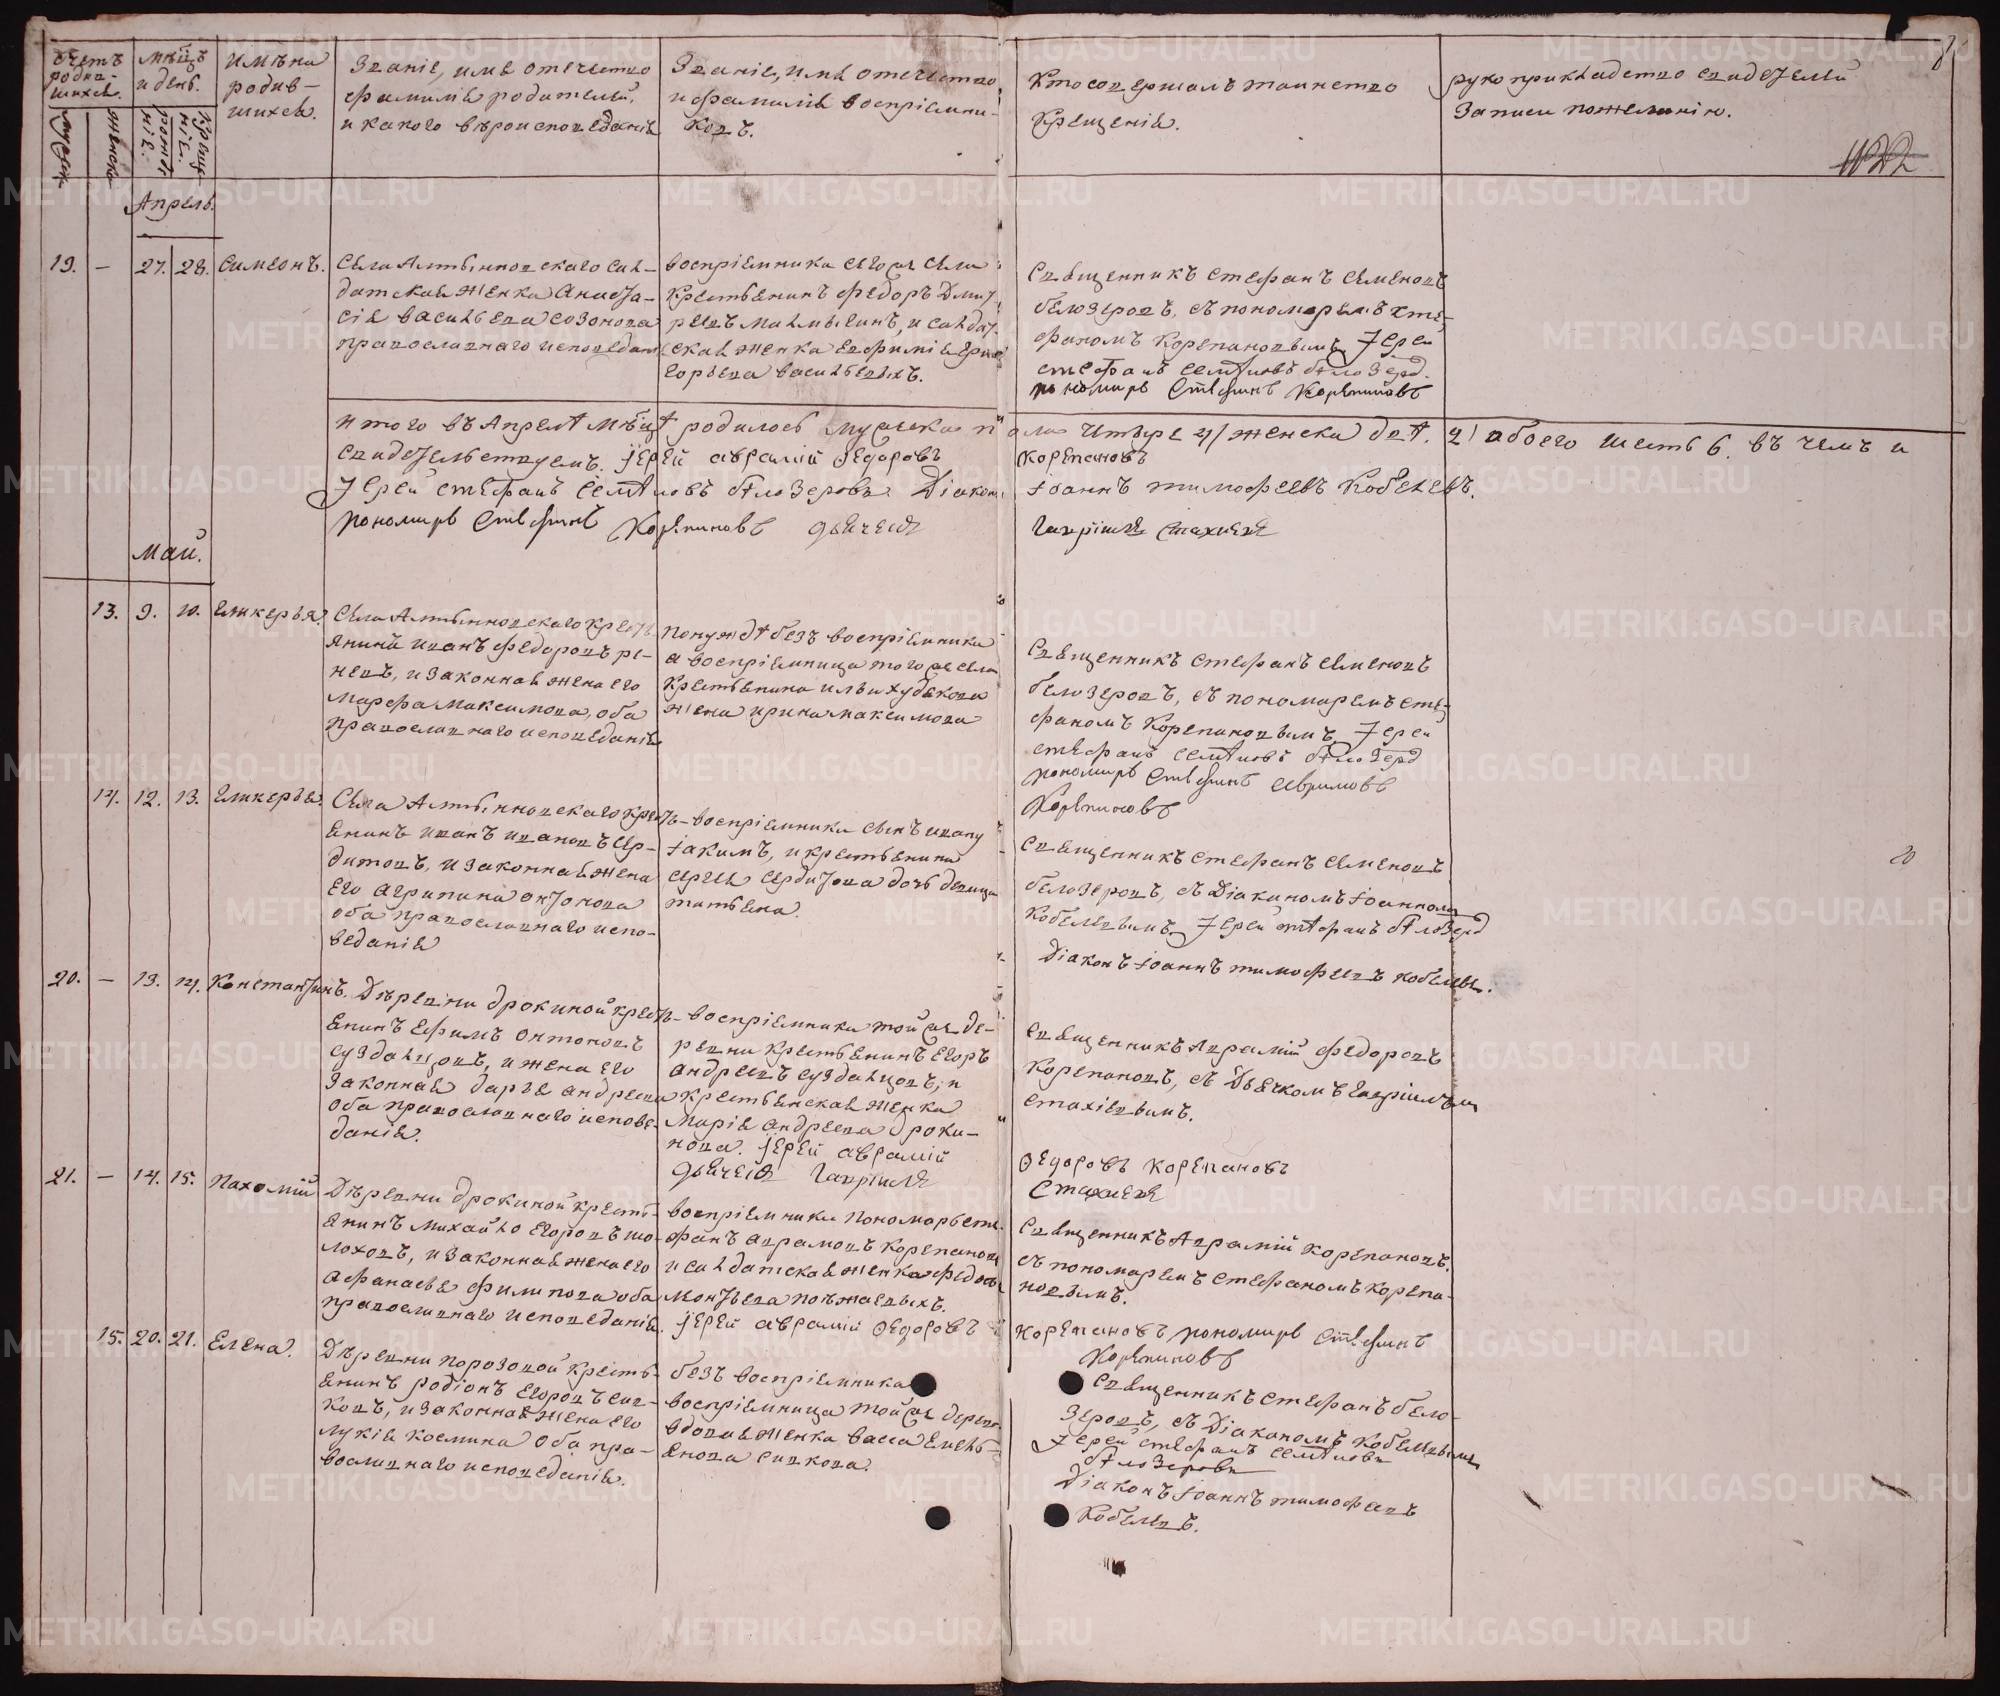 Счетъ родив-шихся.
Мѣсяцъ и день.
Имѣна родив-шихся.
Званіе, имя отечество
фамилія родителей,
и какого вѣроисповеданія
Званіе, имя отечество
и фамилія воспріемни-
ковъ.
Кто совершалъ таинство
Крещенія.
рукоприкладство свидетелей
Записи пожеланію.
мужск.
женска.
рожде-нія.
Креще-нія.
Апрель.
19. — 27. 28. Симеонъ.
Села Алтынновскаго сол-
датская женка Анаста-
сія Васильева Созонова
православнаго исповеданія
воспріемника тогоже села
Крестьянинъ Федоръ Дмит-
ревъ , и солдат-
ская женка Евфимія Гри-
горьева Васильевыхъ.
Священникъ Стефанъ Семеновъ
Белозеровъ, съ пономаремъ Сте-
фаномъ Корепановымъ Іерей
Стефанъ Семѣновъ Бѣлозеровъ
пономарь Стефанъ Корепановъ
Итого въ Апрелѣ мѣсяцѣ родилось мужска пола четыре 4/ женска двѣ. 2/ обоего шесть 6. въ чемъ и
свидетельствуемъ. Іерей Аврамій Ѳедоровъ Корепановъ
Іерей Стефанъ Семѣновъ Бѣлозеровъ Діаконъ Іоаннъ Тимофеевъ Кобелевъ.
пономарь Стефанъ Корепановъ дьячекъ Гавріилъ Стахиевъ
Май.
13. 9. 10. Гликерья.
Села Алтынновскаго кресть-
янинъ Иванъ Федоровъ ре-
невъ, и законная жена его
Марфа Максимова, оба
православнаго исповеданія
Понуждѣ безъ воспріемника
а воспріемница тогоже села
Крестьянина Ильи Худякова
жена Ирина Максимова
Священникъ Стефанъ Семеновъ
Белозеровъ, съ пономаремъ Сте-
фаномъ Корепановымъ Іерей
Стефанъ Семѣновъ Бѣлозеровъ
пономарь Стефанъ Аврамовъ
Корепановъ
14. 12. 13. Гликерья.
Села Алтынновскаго кресть-
янинъ Иванъ Ивановъ Сер-
дитовъ, и законная жена
его Агрипина Онтонова
оба православнаго испо-
веданія
воспріемники сынъ Ивану
Іакимъ, и крестьянина
Сергея Сердитова дочь девица
Татьяна.
Священникъ Стефанъ Семеновъ
Белозеровъ, съ Діакономъ Іоанномъ
Кобелевымъ Іерей Стефанъ Бѣлозеровъ
Діаконъ Іоаннъ Тимофеевъ Кобелевъ.
20. — 13. 14. Константинъ.
Деревни Дрокиной кресть-
янинъ Ефимъ Онтоновъ
Суздальцовъ, и жена его
законная Дарья Андреева
оба православнаго испове-
данія.
воспріемники тойже де-
ревни Крестьянинъ Егоръ
Андреевъ Суздальцовъ, и
крестьянская женка
Марія Андреева Дроки-
нова. Іерей Аврамій Ѳедоровъ Корепановъ
дьячекъ Гавріилъ Стахиевъ
Священникъ Аврамій Федоровъ
Корепановъ, съ Дьячкомъ Гавріиломъ
Стахіевымъ.
21. — 14. 15. Пахомій
Деревни Дрокиной кресть-
янинъ Михайло Егоровъ Шо-
лоховъ, и законная жена его
Афанасья Филипова оба
православнаго исповеданія.
воспріемники пономарь Сте-
фанъ Аврамовъ Корепановъ
и солдатская женка Федосья
.
Іерей Аврамій Ѳедоровъ Корепановъ пономарь Стефанъ
Корепановъ
Священникъ Аврамій Корепановъ.
съ пономаремъ Стефаномъ Корепа-
новымъ.
15. 20. 21. Елена.
Деревни Порозовой Кресть-
янинъ Родіонъ Егоровъ Сив-
ковъ, и законная жена его
Лукія Космина оба пра-
вославнаго исповеданія.
безъ воспріемника
воспріемница тойже деревни
вдовая женка Васса Емель-
янова Сивкова.
Священникъ Стефанъ Бело-
зеровъ, съ Діакономъ Кобелевымъ
Іерей Стефанъ Семѣновъ
Бѣлозеровъ
Діаконъ Іоаннъ Тимофеевъ
Кобелевъ.
METRIKI.GASO-URAL.RU